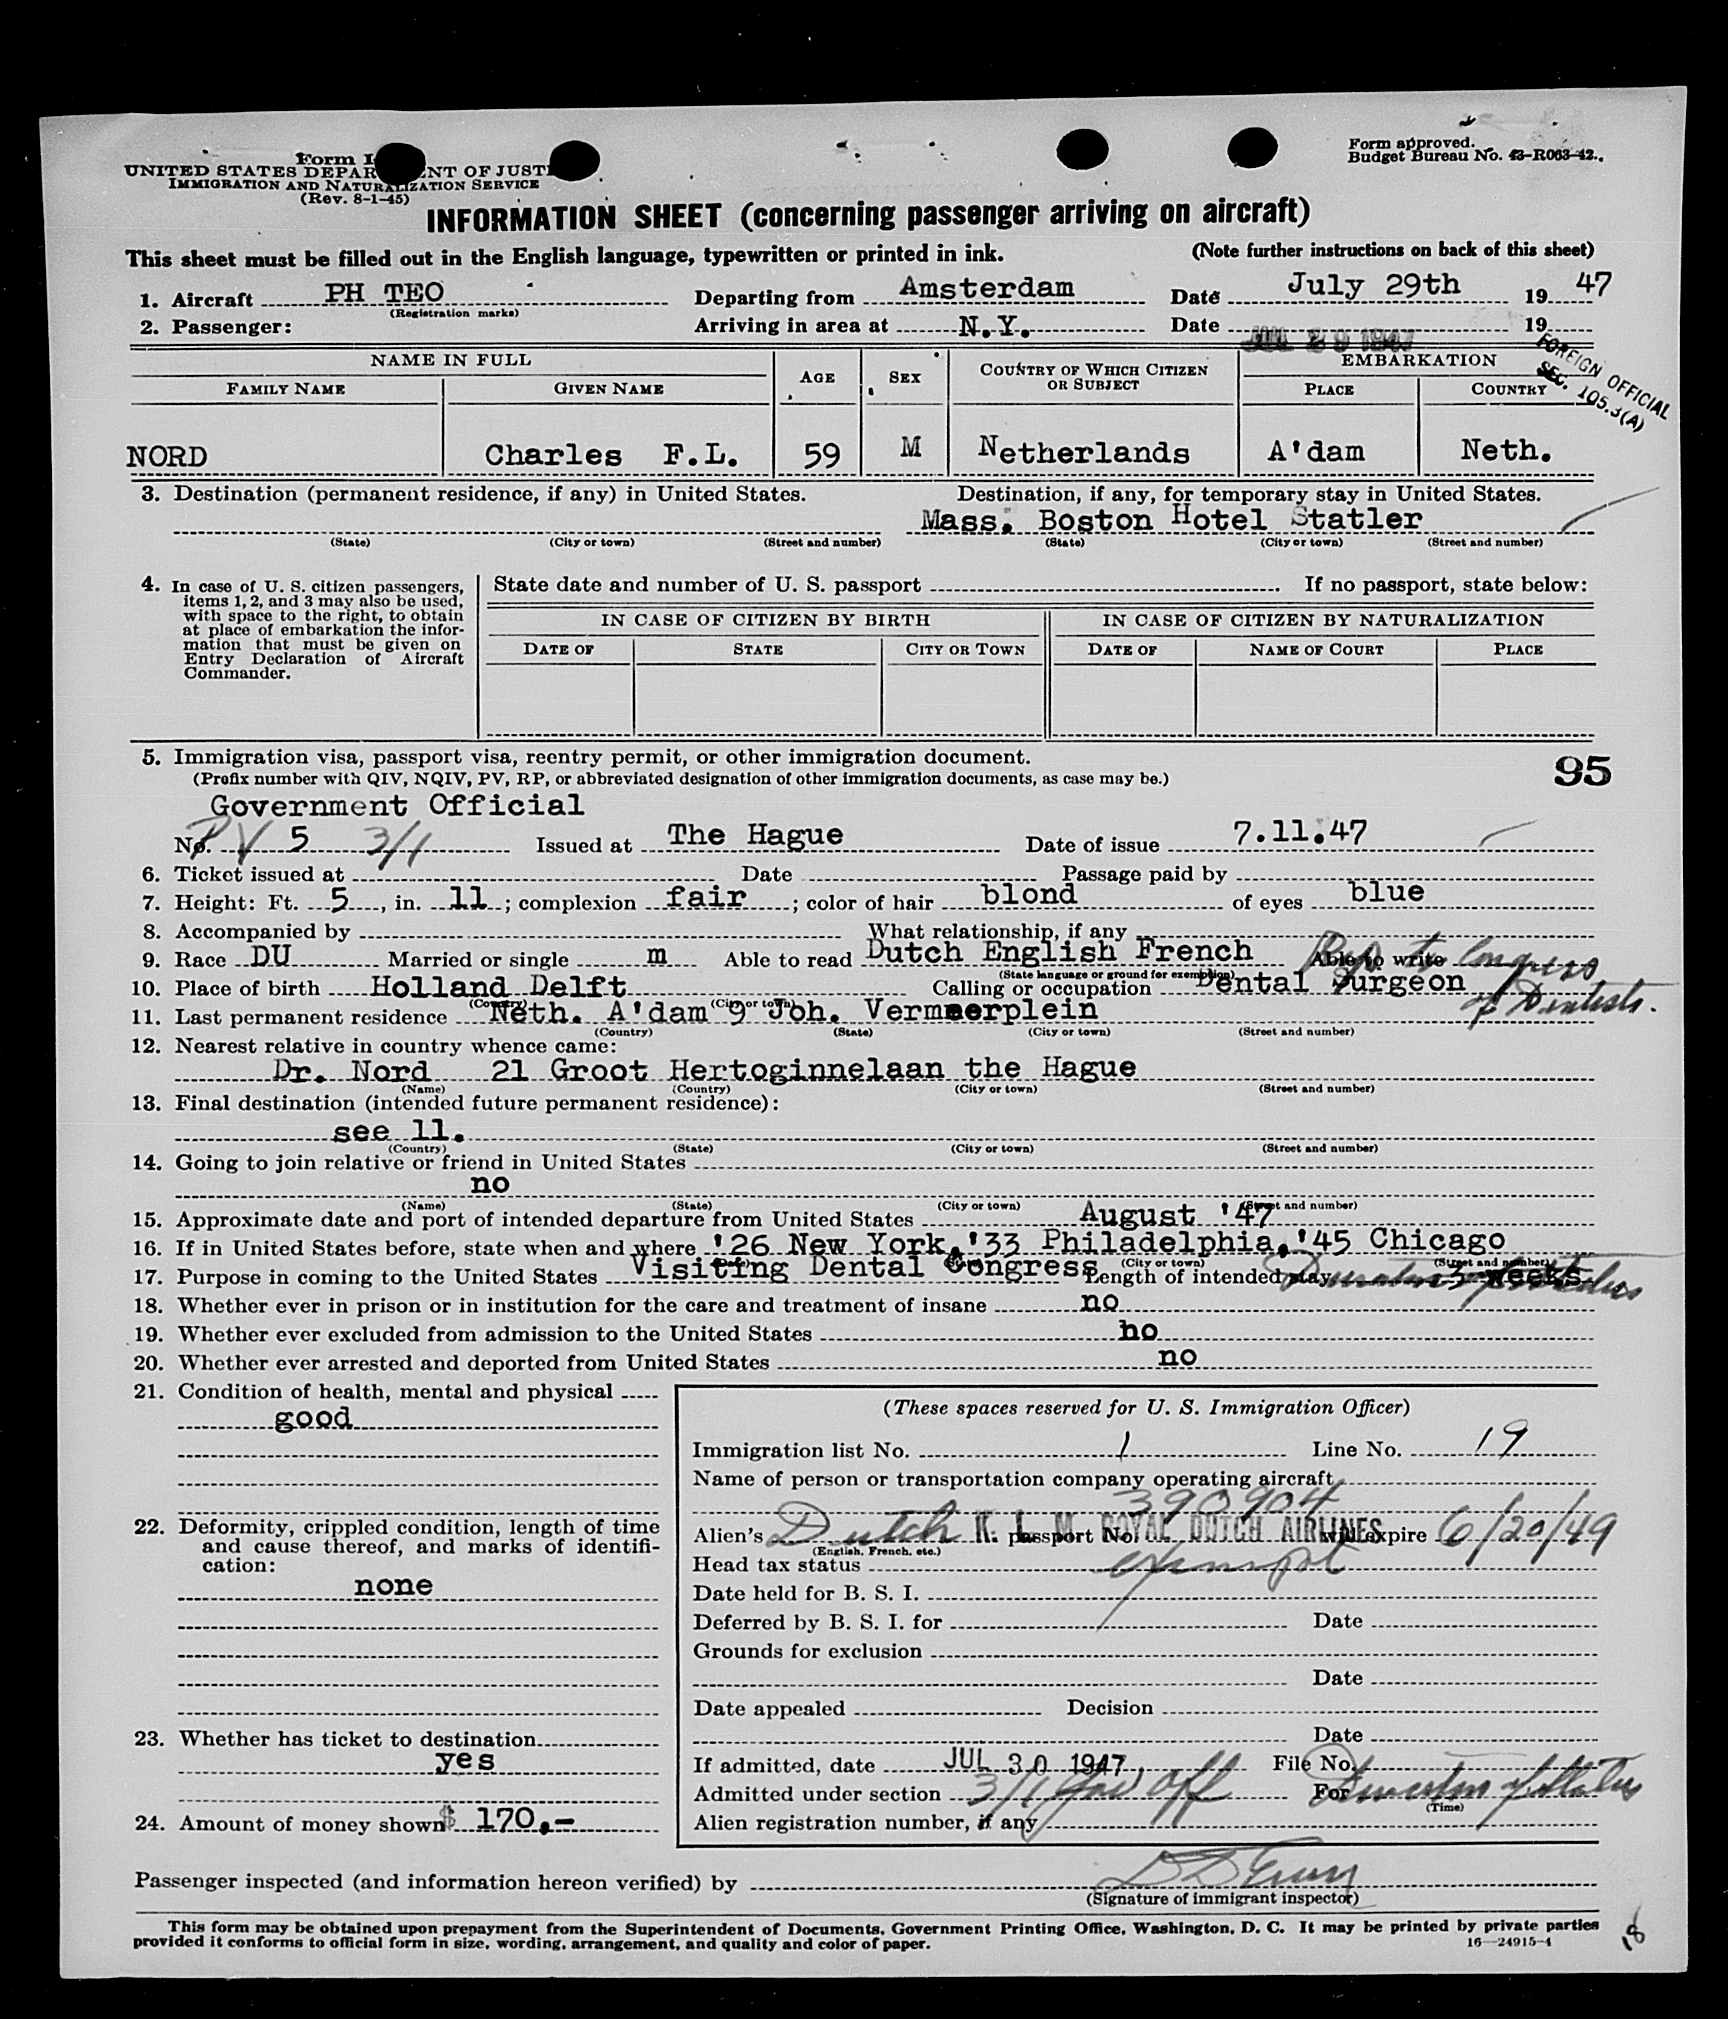 Form I
UNITED STATES DEPAR NT OF JUST
IMMIGRATION AND NATURALIZATION SERVICE
(Rev. 8-1-45)
Form approved.
Budget Bureau No. 43-R063-42.
INFORMATION SHEET (concerning passenger arriving on aircraft)
This sheet must be filled out in the English language, typewritten or printed in ink. (Note further instructions on back of this sheet)
1. Aircraft PH TEO Departing from Amsterdam Date July 29th 19 47
(Registration marks)
2. Passenger: Arriving in area at N.Y. Date JUL 29 1947 19
FOREIGN OFFICIAL
SEC. 105.3(A)
NAME IN FULL AGE SEX COUNTRY OF WHICH CITIZEN OR SUBJECT EMBARKATION
FAMILY NAME GIVEN NAME PLACE COUNTRY
NORD Charles F.L. 59 M Netherlands A'dam Neth.
3. Destination (permanent residence, if any) in United States. Destination, if any, for temporary stay in United States.
Mass. Boston Hotel Statler
(State) (City or town) (Street and number) (State) (City or town) (Street and number)
4. In case of U. S. citizen passengers,
items 1, 2, and 3 may also be used,
with space to the right, to obtain
at place of embarkation the infor-
mation that must be given on
Entry Declaration of Aircraft
Commander.
State date and number of U. S. passport If no passport, state below:
IN CASE OF CITIZEN BY BIRTH IN CASE OF CITIZEN BY NATURALIZATION
DATE OF STATE CITY OR TOWN DATE OF NAME OF COURT PLACE
5. Immigration visa, passport visa, reentry permit, or other immigration document.
(Prefix number with QIV, NQIV, PV, RP, or abbreviated designation of other immigration documents, as case may be.)
95
Government Official
No. PV 5 3/1 Issued at The Hague Date of issue 7.11.47
6. Ticket issued at Date Passage paid by
7. Height: Ft. 5, in. 11; complexion fair; color of hair blond of eyes blue
8. Accompanied by What relationship, if any
9. Race DU Married or single m Able to read Dutch English French Able to write
(State language or ground for exemption)
Rep. to Congress
of Dentists.
10. Place of birth Holland Delft Calling or occupation Dental Surgeon
(Country) (City or town)
11. Last permanent residence Neth. A'dam 9 Joh. Vermeerplein
(Country) (State) (City or town) (Street and number)
12. Nearest relative in country whence came:
Dr. Nord 21 Groot Hertoginnelaan the Hague
(Name) (Country) (City or town) (Street and number)
13. Final destination (intended future permanent residence):
see 11.
(Country) (State) (City or town) (Street and number)
14. Going to join relative or friend in United States
no
(Name) (State) (City or town) (Street and number)
15. Approximate date and port of intended departure from United States August '47
16. If in United States before, state when and where '26 New York,'33 Philadelphia,'45 Chicago
(City or town) (Street and number)
17. Purpose in coming to the United States Visiting Dental Congress Length of intended stay 3 weeks
Duration of status
18. Whether ever in prison or in institution for the care and treatment of insane no
19. Whether ever excluded from admission to the United States no
20. Whether ever arrested and deported from United States no
21. Condition of health, mental and physical
good
22. Deformity, crippled condition, length of time
and cause thereof, and marks of identifi-
cation:
none
23. Whether has ticket to destination
yes
24. Amount of money shown $ 170,-
(These spaces reserved for U. S. Immigration Officer)
Immigration list No. 1 Line No. 19
Name of person or transportation company operating aircraft
K. L. M. ROYAL DUTCH AIRLINES
Alien's Dutch passport No. 390904 will expire 6/20/49
(English, French, etc.)
Head tax status exempt
Date held for B. S. I.
Deferred by B. S. I. for Date
Grounds for exclusion
Date
Date appealed Decision
Date
If admitted, date JUL 30 1947 File No.
Admitted under section 3/1 Gov Off For Duration of Status
(Time)
Alien registration number, if any
Passenger inspected (and information hereon verified) by
(Signature of immigrant inspector)
This form may be obtained upon prepayment from the Superintendent of Documents, Government Printing Office, Washington, D. C. It may be printed by private parties
provided it conforms to official form in size, wording, arrangement, and quality and color of paper.
16—24915-1
18